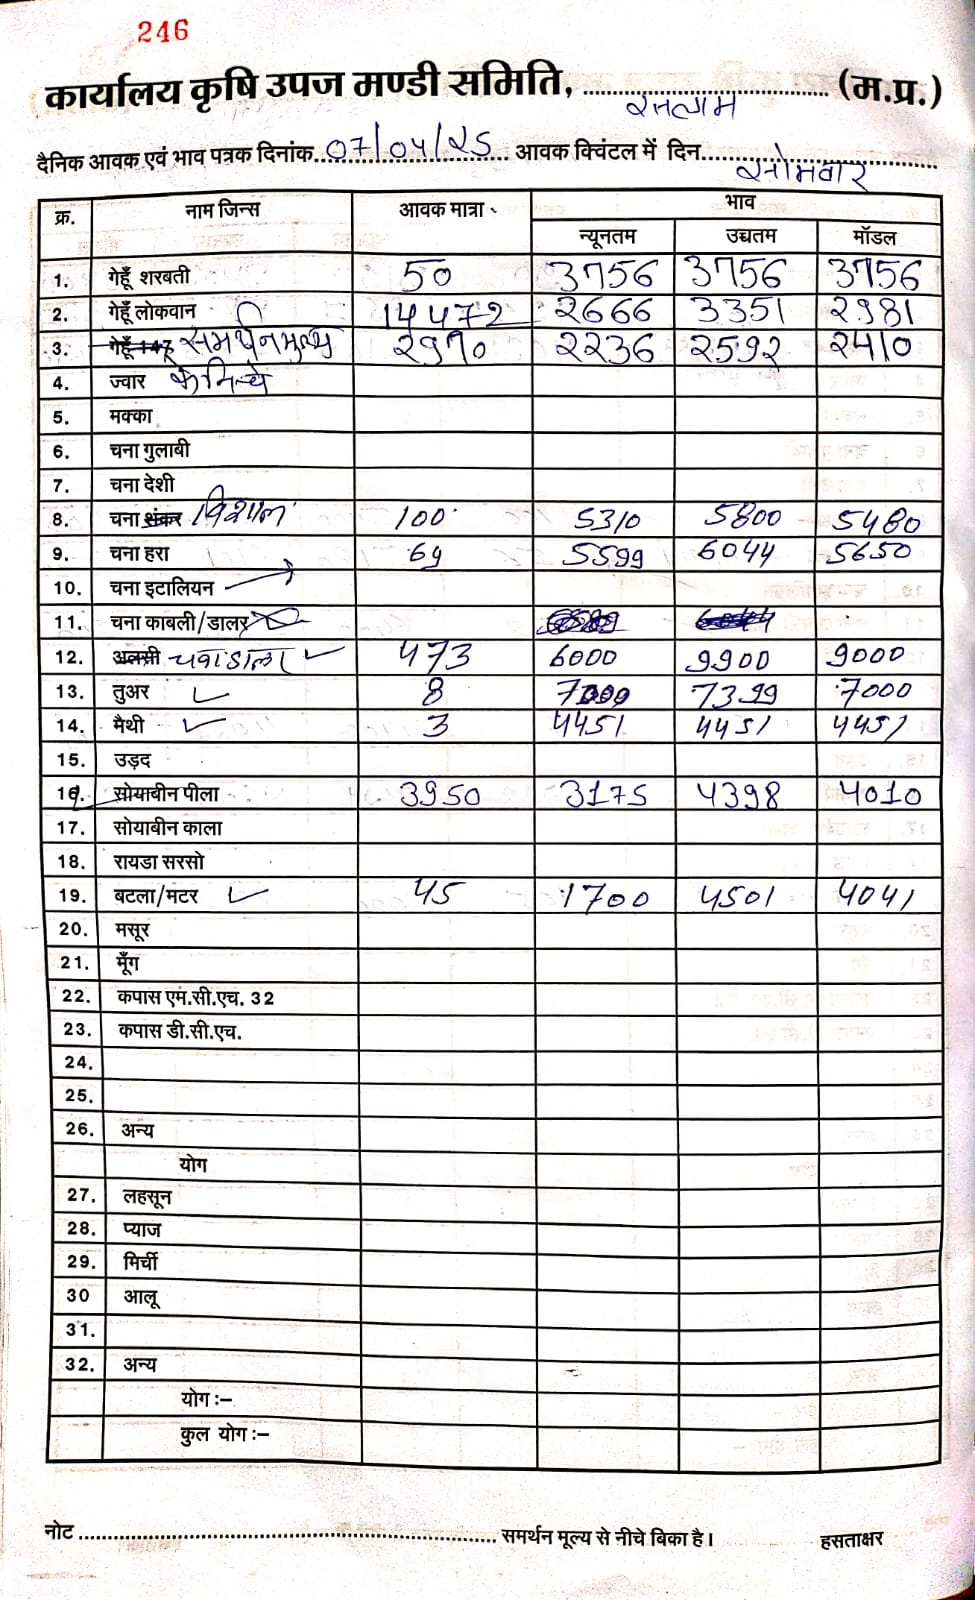 246
कार्यालय कृषि उपज मण्डी समिति, रतलाम (म.प्र.)
दैनिक आवक एवं भाव पत्रक दिनांक 07/04/25 आवक क्विंटल में दिन सोमवार
क्र. नाम जिन्स आवक मात्रा भाव
न्यूनतम उच्चतम मॉडल
1. गेहूँ शरबती 50 3756 3756 3756
2. गेहूँ लोकवान 14472 2666 3351 2981
3. गेहूँ 147 समर्थन मुल्य 2970 2236 2592 2410
4. ज्वार के निचे
5. मक्का
6. चना गुलाबी
7. चना देशी
8. चना शंकर विशाल 100 5310 5800 5480
9. चना हरा 69 5599 6044 5650
10. चना इटालियन
11. चना काबली/डालर
12. अलसी चना डालर 473 6000 9900 9000
13. तुअर 8 7399 7000
14. मैथी 3 4451 4451 4451
15. उड़द
16. सोयाबीन पीला 3950 3175 4398 4010
17. सोयाबीन काला
18. रायडा सरसो
19. बटला/मटर 45 1700 4501 4041
20. मसूर
21. मूँग
22. कपास एम.सी.एच. 32
23. कपास डी.सी.एच.
24.
25.
26. अन्य
योग
27. लहसून
28. प्याज
29. मिर्ची
30 आलू
31.
32. अन्य
योग :–
कुल योग :–
नोट समर्थन मूल्य से नीचे बिका है। हसताक्षर